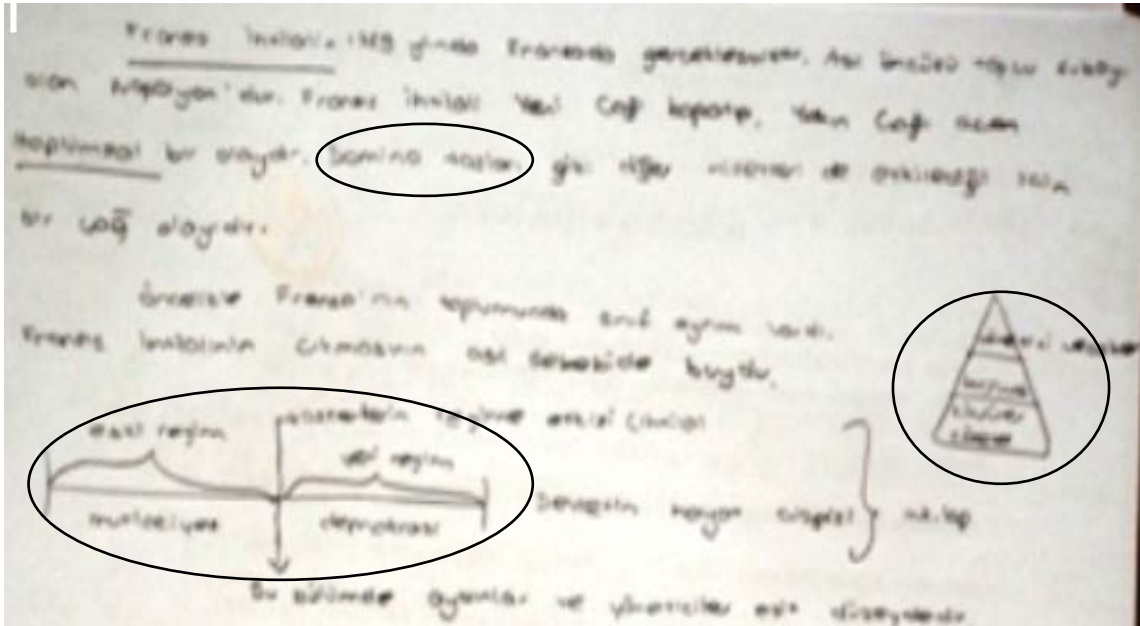 Fransız İhtilali, 1789 yılında Fransada gerçekleşmiştir. Asıl öncüsü topçu subayı
olan Napolyon'dur. Fransız İhtilali Yeni Çağ kapatıp, Yakın Çağ açan
toplumsal bir olaydır. Domino taşları gibi diğer milletleri de etkilediği için
bir çağ olayıdır.
Öncelikle Fransa'nın toplumunda sınıf ayrım vardı.
Fransız İhtilalinin çıkmasının asıl sebebide buydu.
burjuva
köylüler
eski rejim
rejime etkisi
yeni rejim
mutlakiyet
demokrasi
Devletin hayat
inkılap
Bu bölümde aydınlar ve yöneticiler eşit düzeydedir.